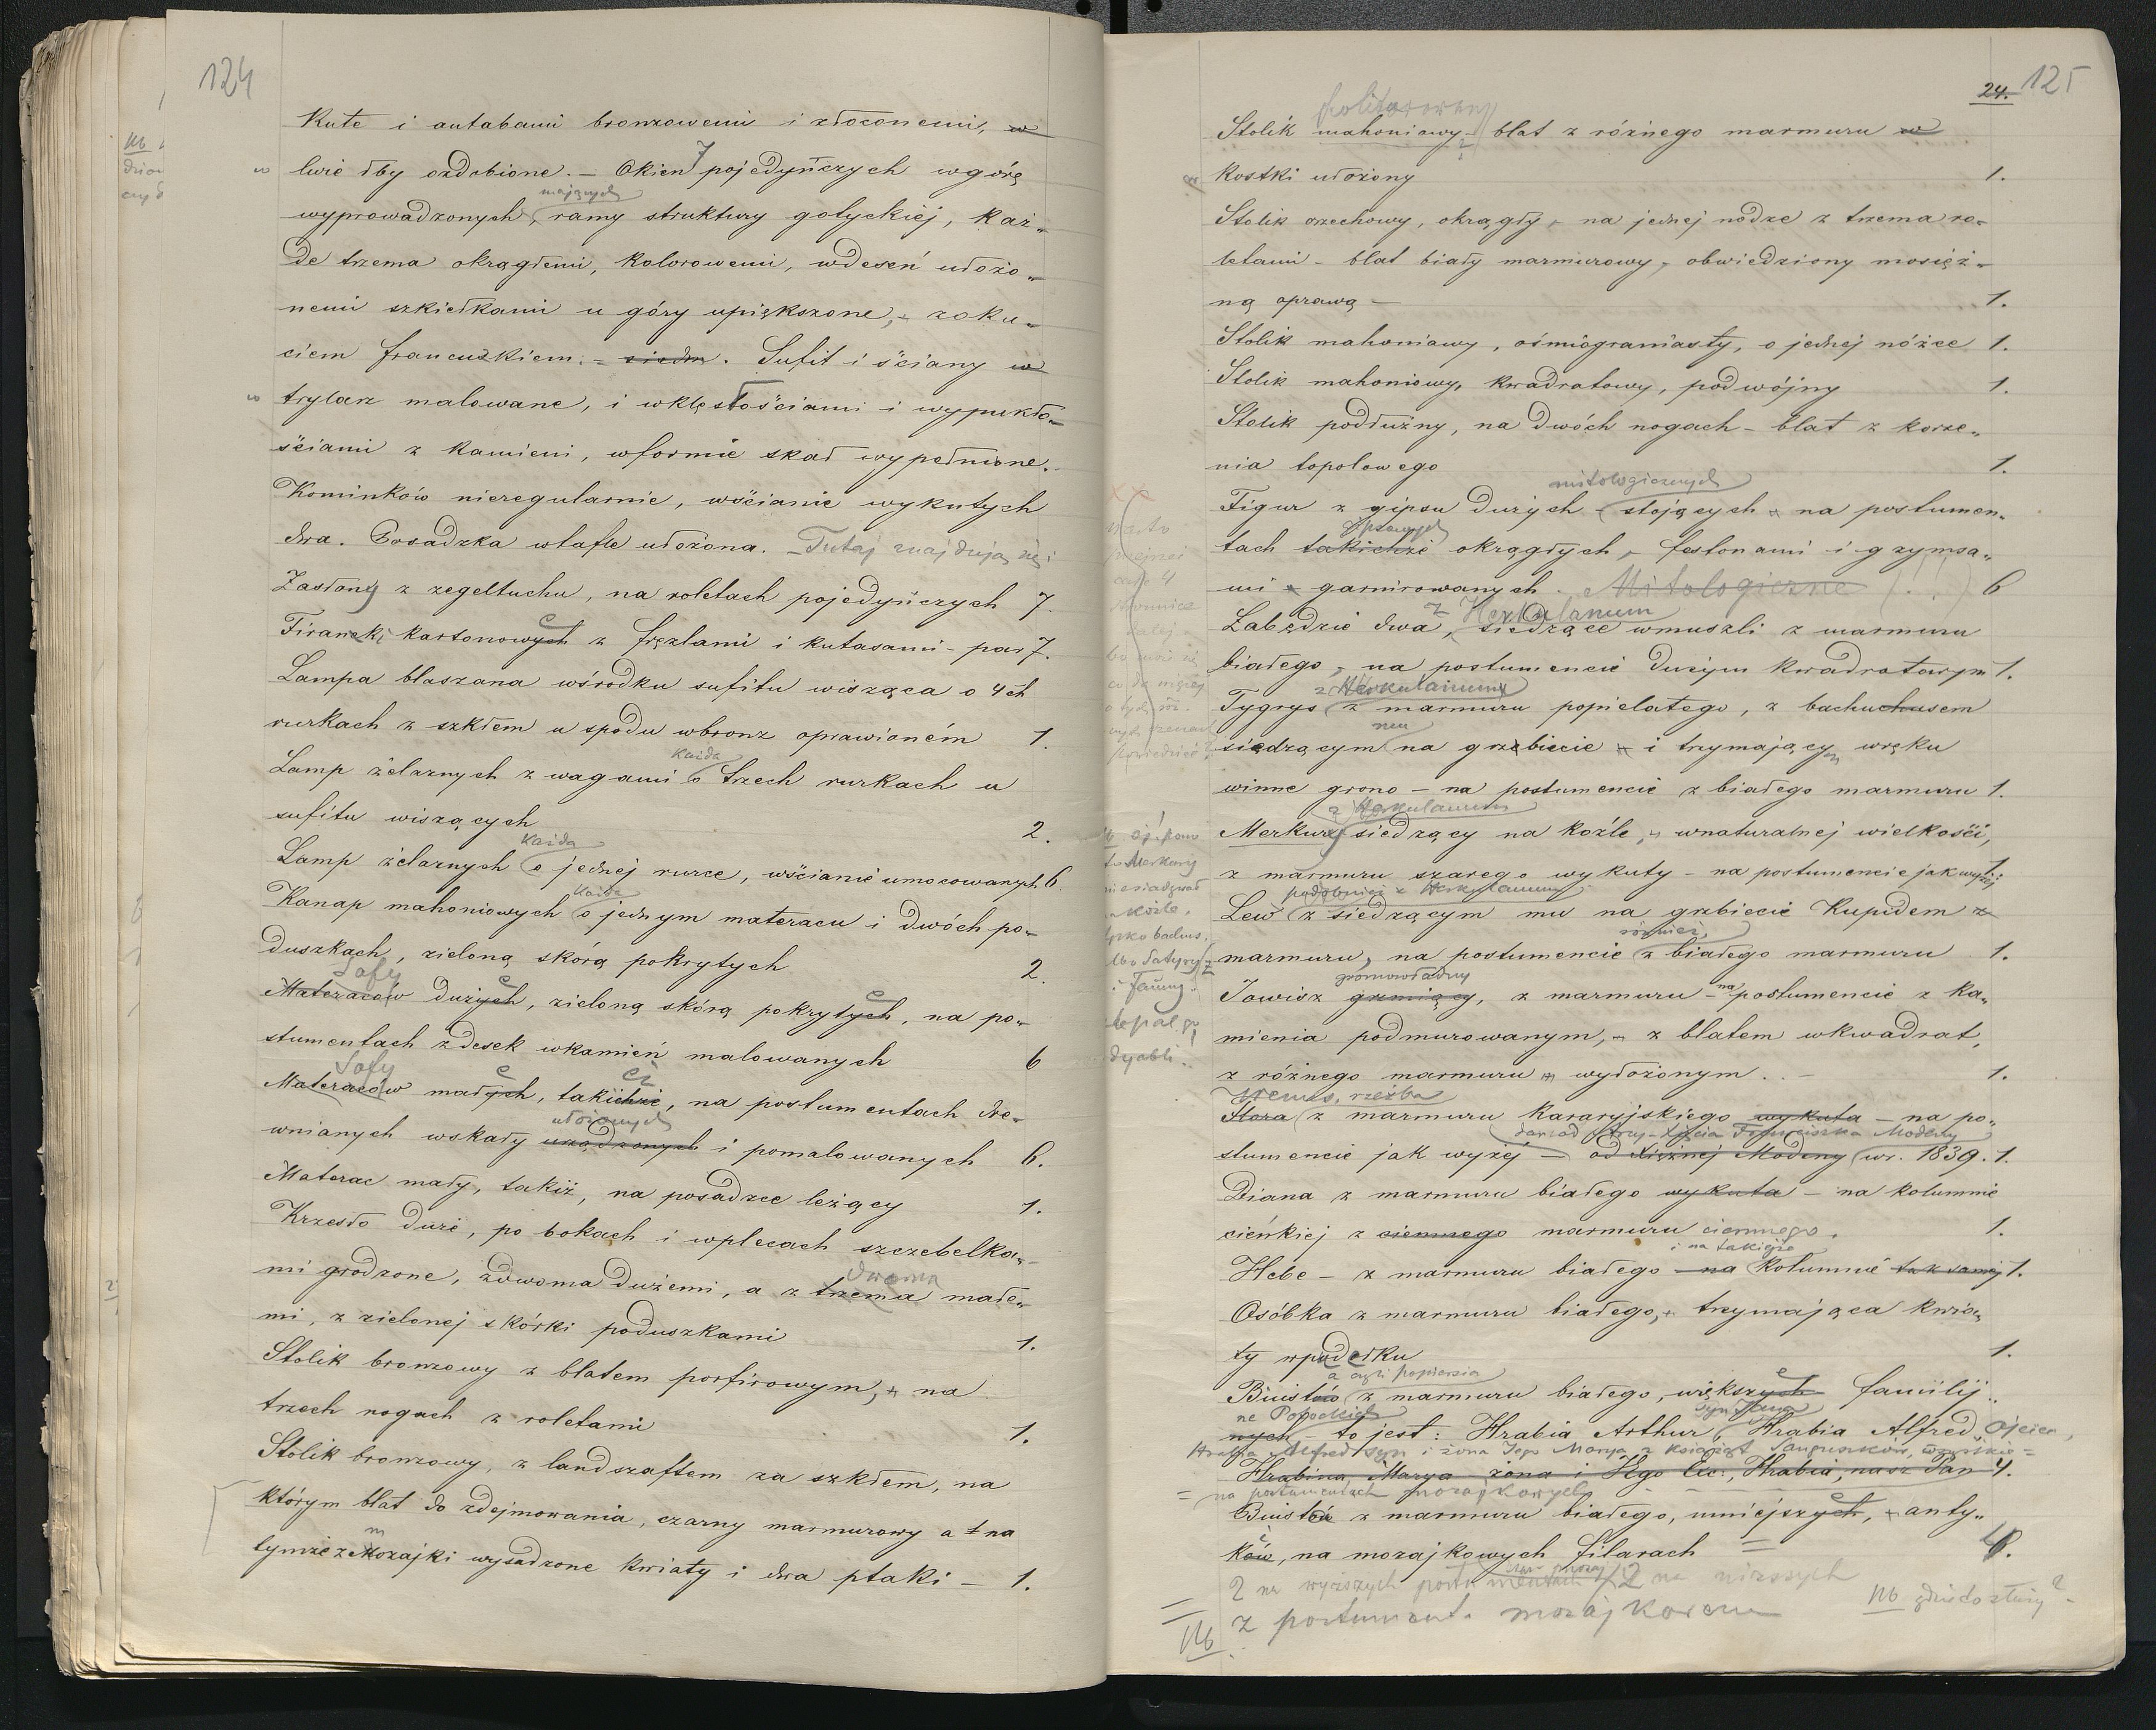 124
Kute i antabami bronzowemi i złoconemi, w
w lwie łby ozdobione. – Okien 7 pojedyńczych wgórę
mających
wyprowadzonych, ramy struktury gotyckiéj, każ„
de trzema okrągłemi, kolorowemi, wdeseń ułożo„
nemi szkiełkami u góry upiększone, zoku„
ciem francuskiem. = siedm. Sufit i ściany w
w trylaz malowane, i wklęsłościami i wypukło„
ściami z kamieni, wformie skał wypełnione.
Kominków nieregularnie, wścianie wykutych
dwa. Posadzka wtafle ułożona. – Tutaj znajdują się:
Zasłony z zegeltuchu, na roletach pojedyńczych 7.
Firanek kartonowych z fręzlami i kutasami – par 7.
Lampa blaszana wśrodku sufitu wisząca o 4ch
rurkach z szkłem u spodu wbronz oprawioném 1.
Każda
Lamp żelaznych z wagami o trzech rurkach u
sufitu wiszących 2.
Każda
Lamp żelaznych o jednej rurce, wścianie umocowanych 6
Każda
Kanap mahoniowych o jednym materacu i dwóch po„
duszkach, zieloną skórą pokrytych 2.
Sofy e e
Materaców dużych, zieloną skórą pokrytych, na po„
stumentach zdesek wkamień malowanych 6
Sofy e eż
Materaców małych, takichże, na postumentach dre„
ułożonych
wnianych wskały urządzonych i pomalowanych 6.
Materac mały, takiż, na posadzce leżący 1.
Krzesło duże, po bokach i wplecach szczebelka„
dwoma
mi grodzone, zdwoma dużemi, a z trzema małe„
mi, z zielonej skórki poduszkami 1.
Stolik bronzowy z blatem porfirowym, na
trzech nogach z roletami 1.
Stolik bronzowy, z landszaftem za szkłem, na
którym blat do zdejmowania, czarny marmurowy a na
m
tymże z Mozajki wysadzone kwiaty i dwa ptaki – 1.
24. 125
politurowany
Stolik mahoniowy – blat z różnego marmuru w
w Kostki ułożony 1.
Stolik orzechowy, okrągły, na jednej nodze z trzema ro„
letami – blat biały marmurowy, obwiedziony mosięż„
ną oprawą – 1.
Stolik mahoniowy, ośmiograniasty, o jednej nóżce 1.
Stolik mahoniowy, kwadratowy, podwójny 1.
Stolik podłużny, na dwóch nogach – blat z korze„
nia topolowego 1.
mitologicznych
Figur z gipsu dużych stojących na postumen„
gipsowych
tach takichże okrągłych, festonami i gzymsa„
mi garnirowanych. Mitologiczne 6
z Herkulanum
Łabędzie dwa, siedzące wmuszli z marmuru
białego, na postumencie dużym kwadratowym 1.
z Herkulanum
Tygrys z marmuru popielatego, z bachuchusem
mu
siedzącym na grzbiecie i trzymający wręku
winne grono – na postumencie z białego marmuru 1.
z Herkulanum
Merkury siedzący na koźle, wnaturalnej wielkości,
z marmuru szarego wykuty – na postumencie jak wyżej 1.
podobnież z Herkulanum
Lew z siedzącym mu na grzbiecie Kupidem z
również
marmuru, na postumencie z białego marmuru 1.
gromowładny
Jowisz grzmiący, z marmuru – na postumencie z ka„
mienia podmurowanym, z blatem wkwadrat,
z różnego marmuru wyłożonym . . – 1.
Wenus, rzeźba
z marmuru kararyjskiego wykuta – na po„
stumencie jak wyżej – od Xiężnej Modeny w r. 1839. 1.
Diana z marmuru białego wykuta – na kolumnie
cieńkiej z ciemnego marmuru ciemnego. 1.
i na takiejże
Hebe – z marmuru białego – na kolumnie tak samej 1.
Osóbka z marmuru białego, trzymająca kwia„
ty wpudełku 1.
a czyli popiersia e
Biustów z marmuru białego, większych familij„
ne Potockich syn Jana
nych – to jest: Hrabia Arthur, Hrabia Alfred Ojciec,
Hrabia Alfred syn i żona Jego Marya z książąt Sanguszków, wszystkie =
Hrabina Marya żona i Jego Exc:, Hrabia, nasz Pan 4.
= na postumentach mozajkowych
Biustów z marmuru białego, mniejszych, anty„
ków, na mozajkowych filarach =
2 na wyższych postumentach / 2 na niższych
= z postument. mozajkowem
Nb
Nb gdzie dostały?